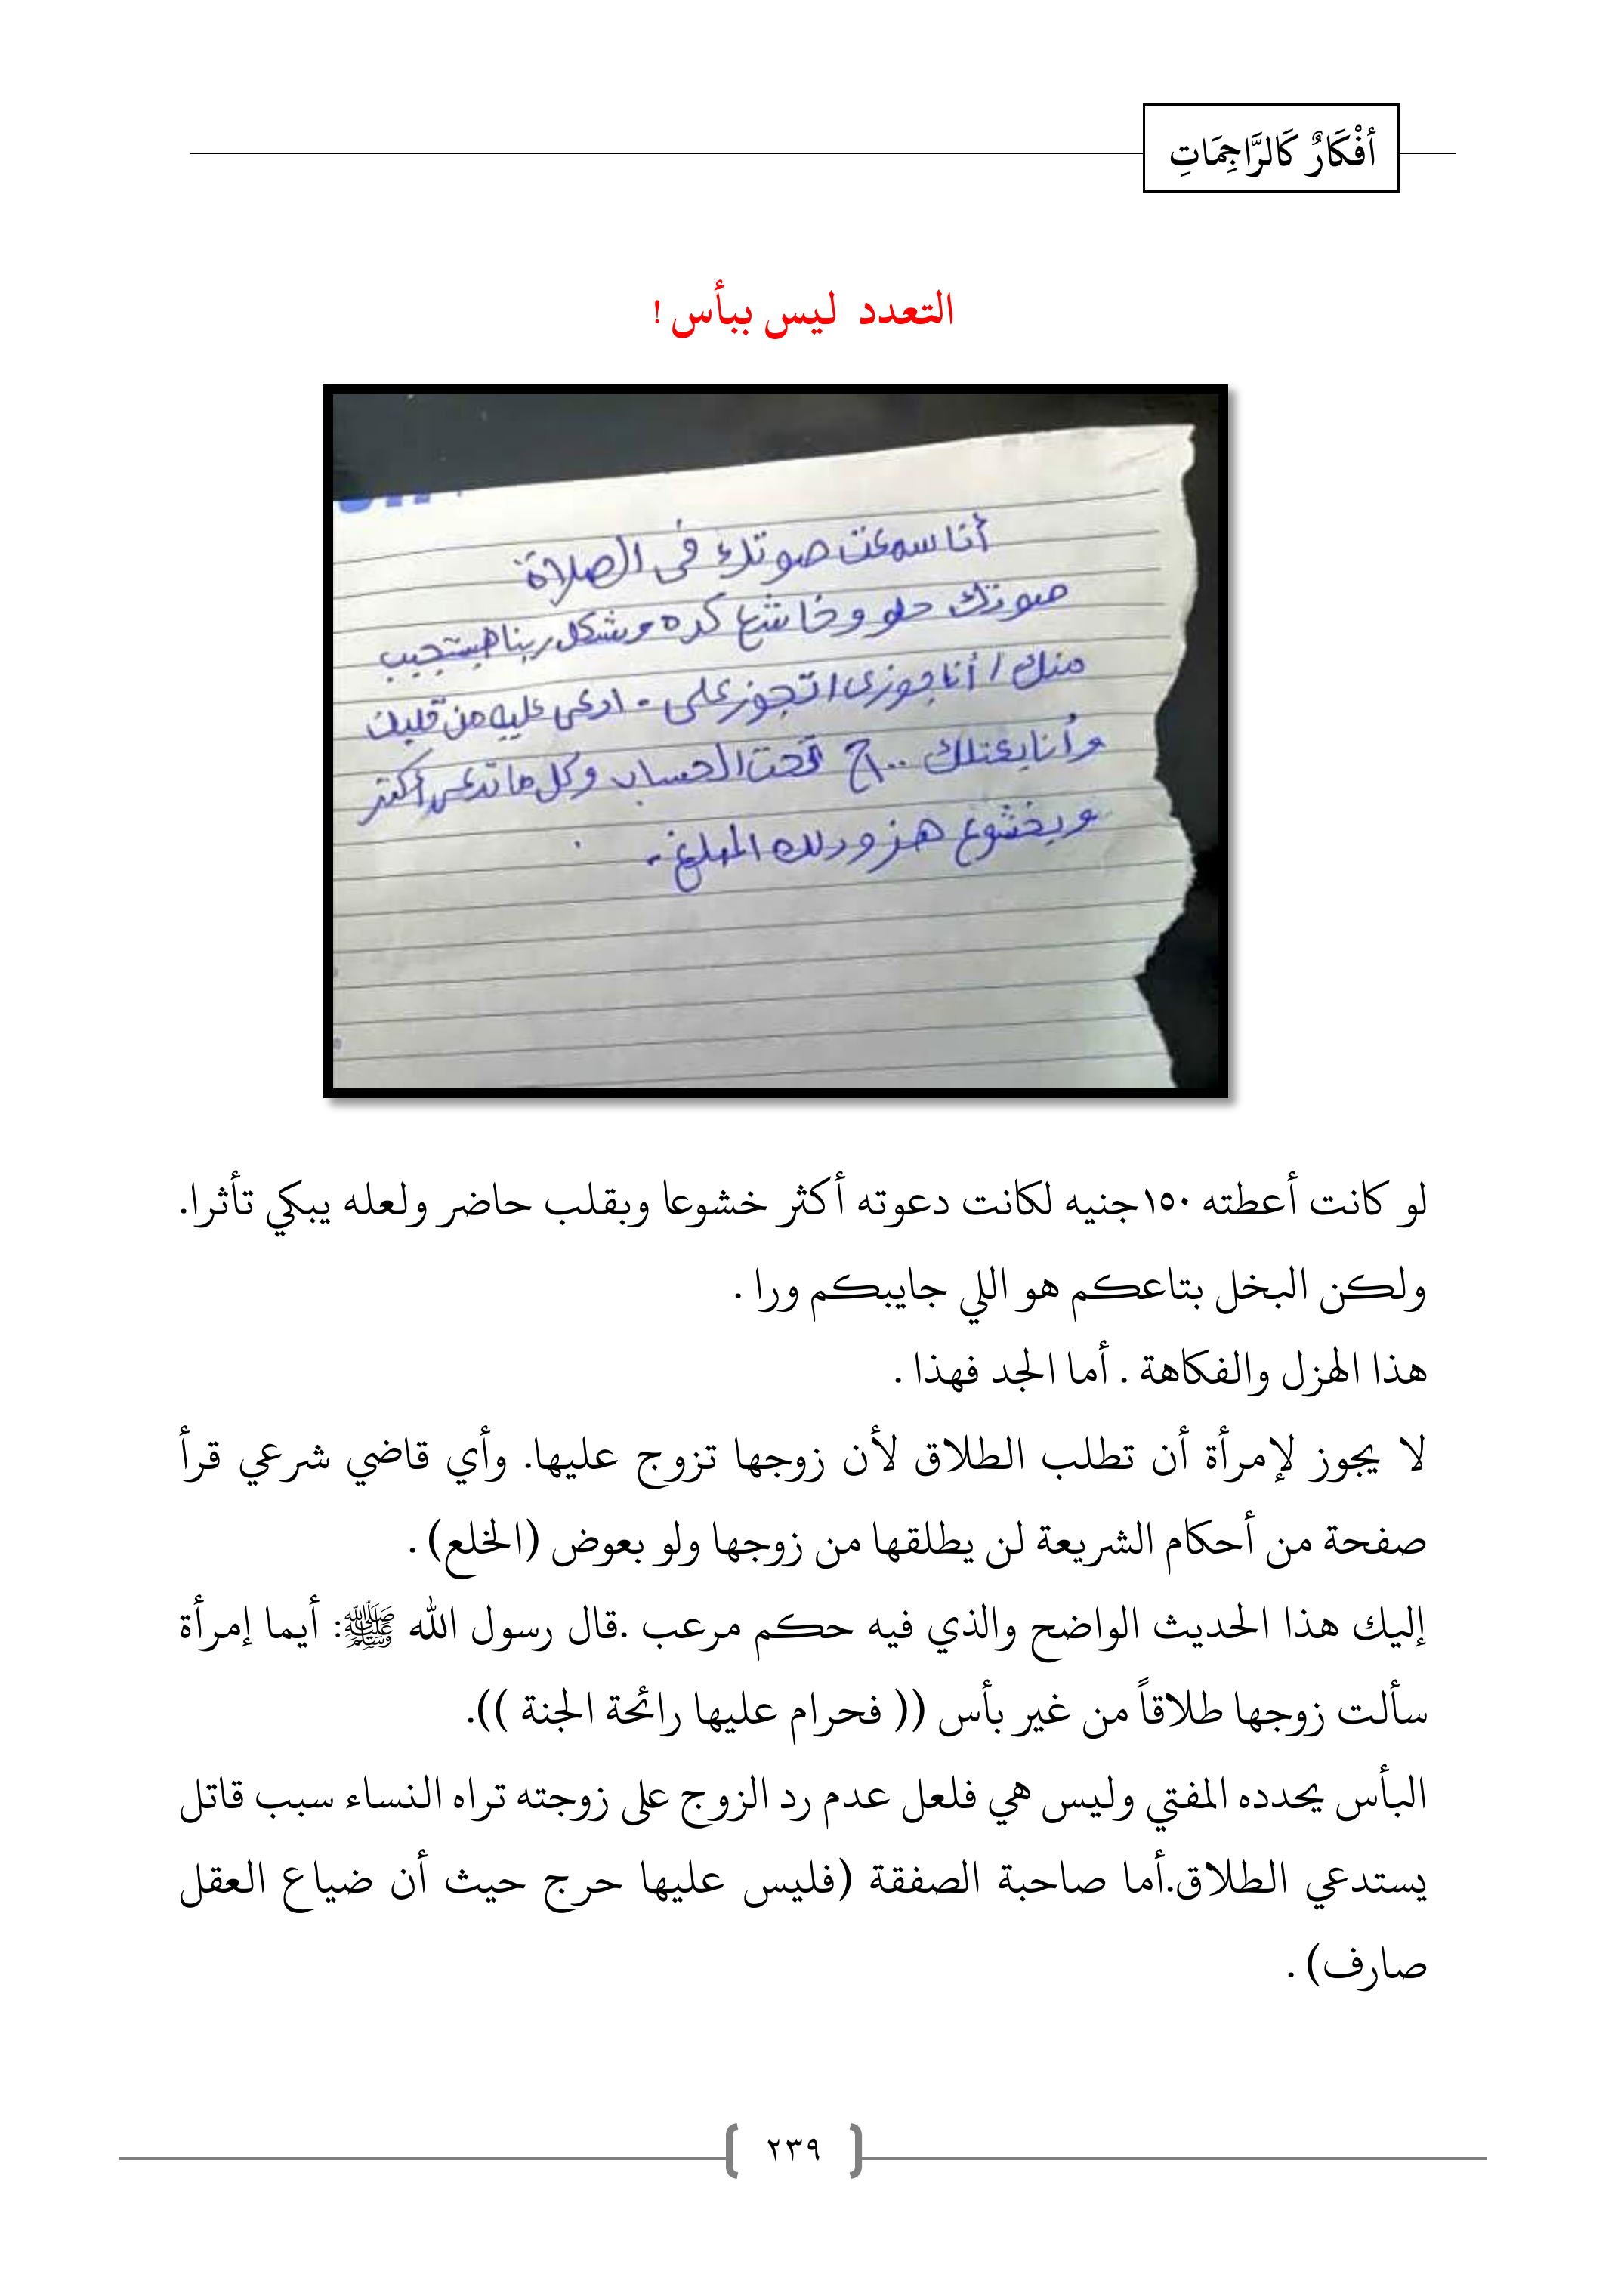 أفْكَارٌ كَالرَّاجِمَاتِ
التعدد ليس ببأس !
أنا سمعت صوتك فى الصلاة
صوتك حلو وخاشع كده وشكل ربنا هيستجيب
منك / أنا جوزى اتجوز على - ادعى عليه من قلبك
وأنا بعتلك ١٠٠ج تحت الحساب وكل ما تدعى أكتر
وبخشوع هزودلك المبلغ -
لو كانت أعطته ١٥٠جنيه لكانت دعوته أكثر خشوعا وبقلب حاضر ولعله يبكي تأثرا.
ولكن البخل بتاعكم هو اللي جايبكم ورا .
هذا الهزل والفكاهة . أما الجد فهذا .
لا يجوز لإمرأة أن تطلب الطلاق لأن زوجها تزوج عليها. وأي قاضي شرعي قرأ
صفحة من أحكام الشريعة لن يطلقها من زوجها ولو بعوض (الخلع) .
إليك هذا الحديث الواضح والذي فيه حكم مرعب .قال رسول الله ﷺ: أيما إمرأة
سألت زوجها طلاقاً من غير بأس (( فحرام عليها رائحة الجنة )).
البأس يحدده المفتي وليس هي فلعل عدم رد الزوج على زوجته تراه النساء سبب قاتل
يستدعي الطلاق.أما صاحبة الصفقة (فليس عليها حرج حيث أن ضياع العقل
صارف) .
٢٣٩